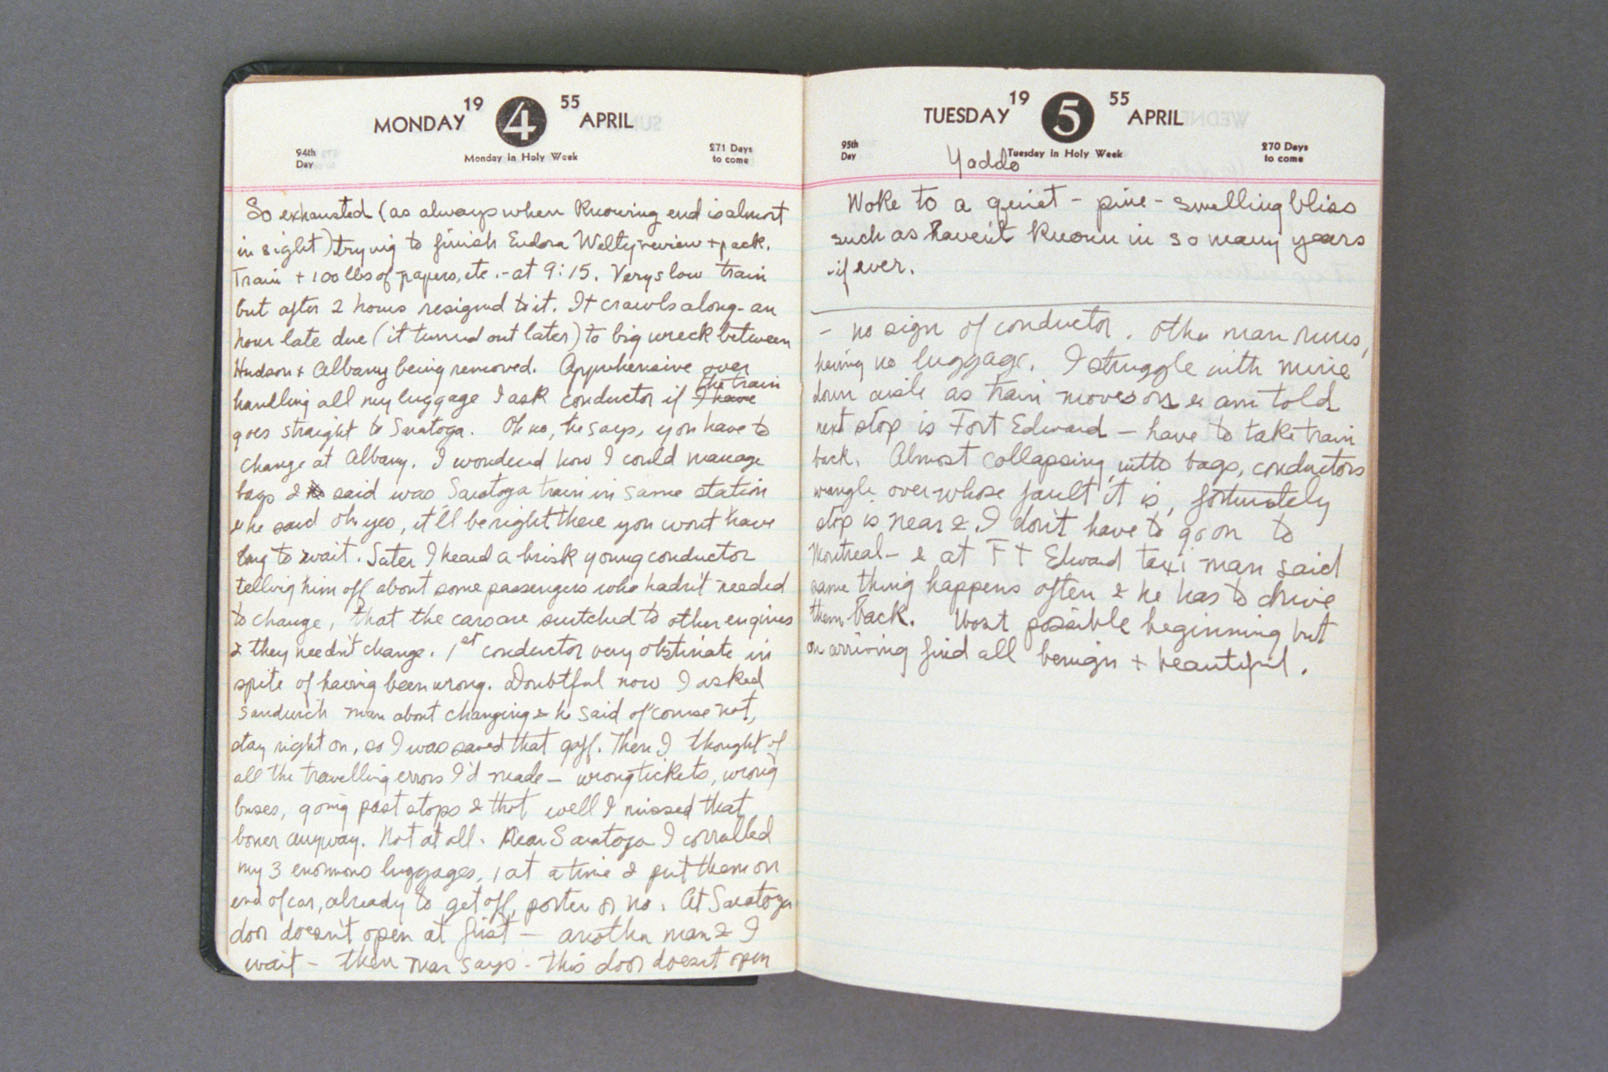 MONDAY 19 4 55 APRIL
94th Day
Monday in Holy Week
271 Days to come
So exhausted (as always when knowing end is almost
in sight) trying to finish Eudora Welty review + pack.
Train + 100 lbs of papers, etc. - at 9:15. Very slow train
but after 2 hours resigned to it. It crawls along - an
hour late due (it turned out later) to big wreck between
Hudson + Albany being removed. Apprehensive over
handling all my luggage I ask conductor if I have the train
goes straight to Saratoga. Oh no, he says, you have to
change at Albany. I wondered how I could manage
bags & said was Saratoga train in same station
& he said oh yes, it'll be right there you won't have
long to wait. Later I heard a brisk young conductor
telling him off about some passengers who hadn't needed
to change, that the cars are switched to other engines
& they needn't change. 1st conductor very obstinate in
spite of having been wrong. Doubtful now I asked
sandwich man about changing & he said of course not,
stay right on, so I was saved that gaff. Then I thought of
all the travelling errors I'd made - wrong tickets, wrong
buses, going past stops & thot well I missed that
boner anyway. Not at all. Near Saratoga I corralled
my 3 enormous luggages, 1 at a time & put them on
end of car, already to get off, porter or no. At Saratoga
door doesn't open at first - another man & I
wait - then man says - this door doesn't open
TUESDAY 19 5 55 APRIL
95th Day
Tuesday in Holy Week
270 Days to come
Yaddo
Woke to a quiet - pine - smelling bliss
such as haven't known in so many years
- if ever.
- no sign of conductor. Other man runs,
having no luggage. I struggle with mine
down aisle as train moves on & am told
next stop is Fort Edward - have to take train
back. Almost collapsing with bags, conductors
wrangle over whose fault it is, fortunately
stop is near & I don't have to go on to
Montreal - & at Ft Edward taxi man said
same thing happens often & he has to drive
them back. Worst possible beginning but
on arriving find all benign + beautiful.